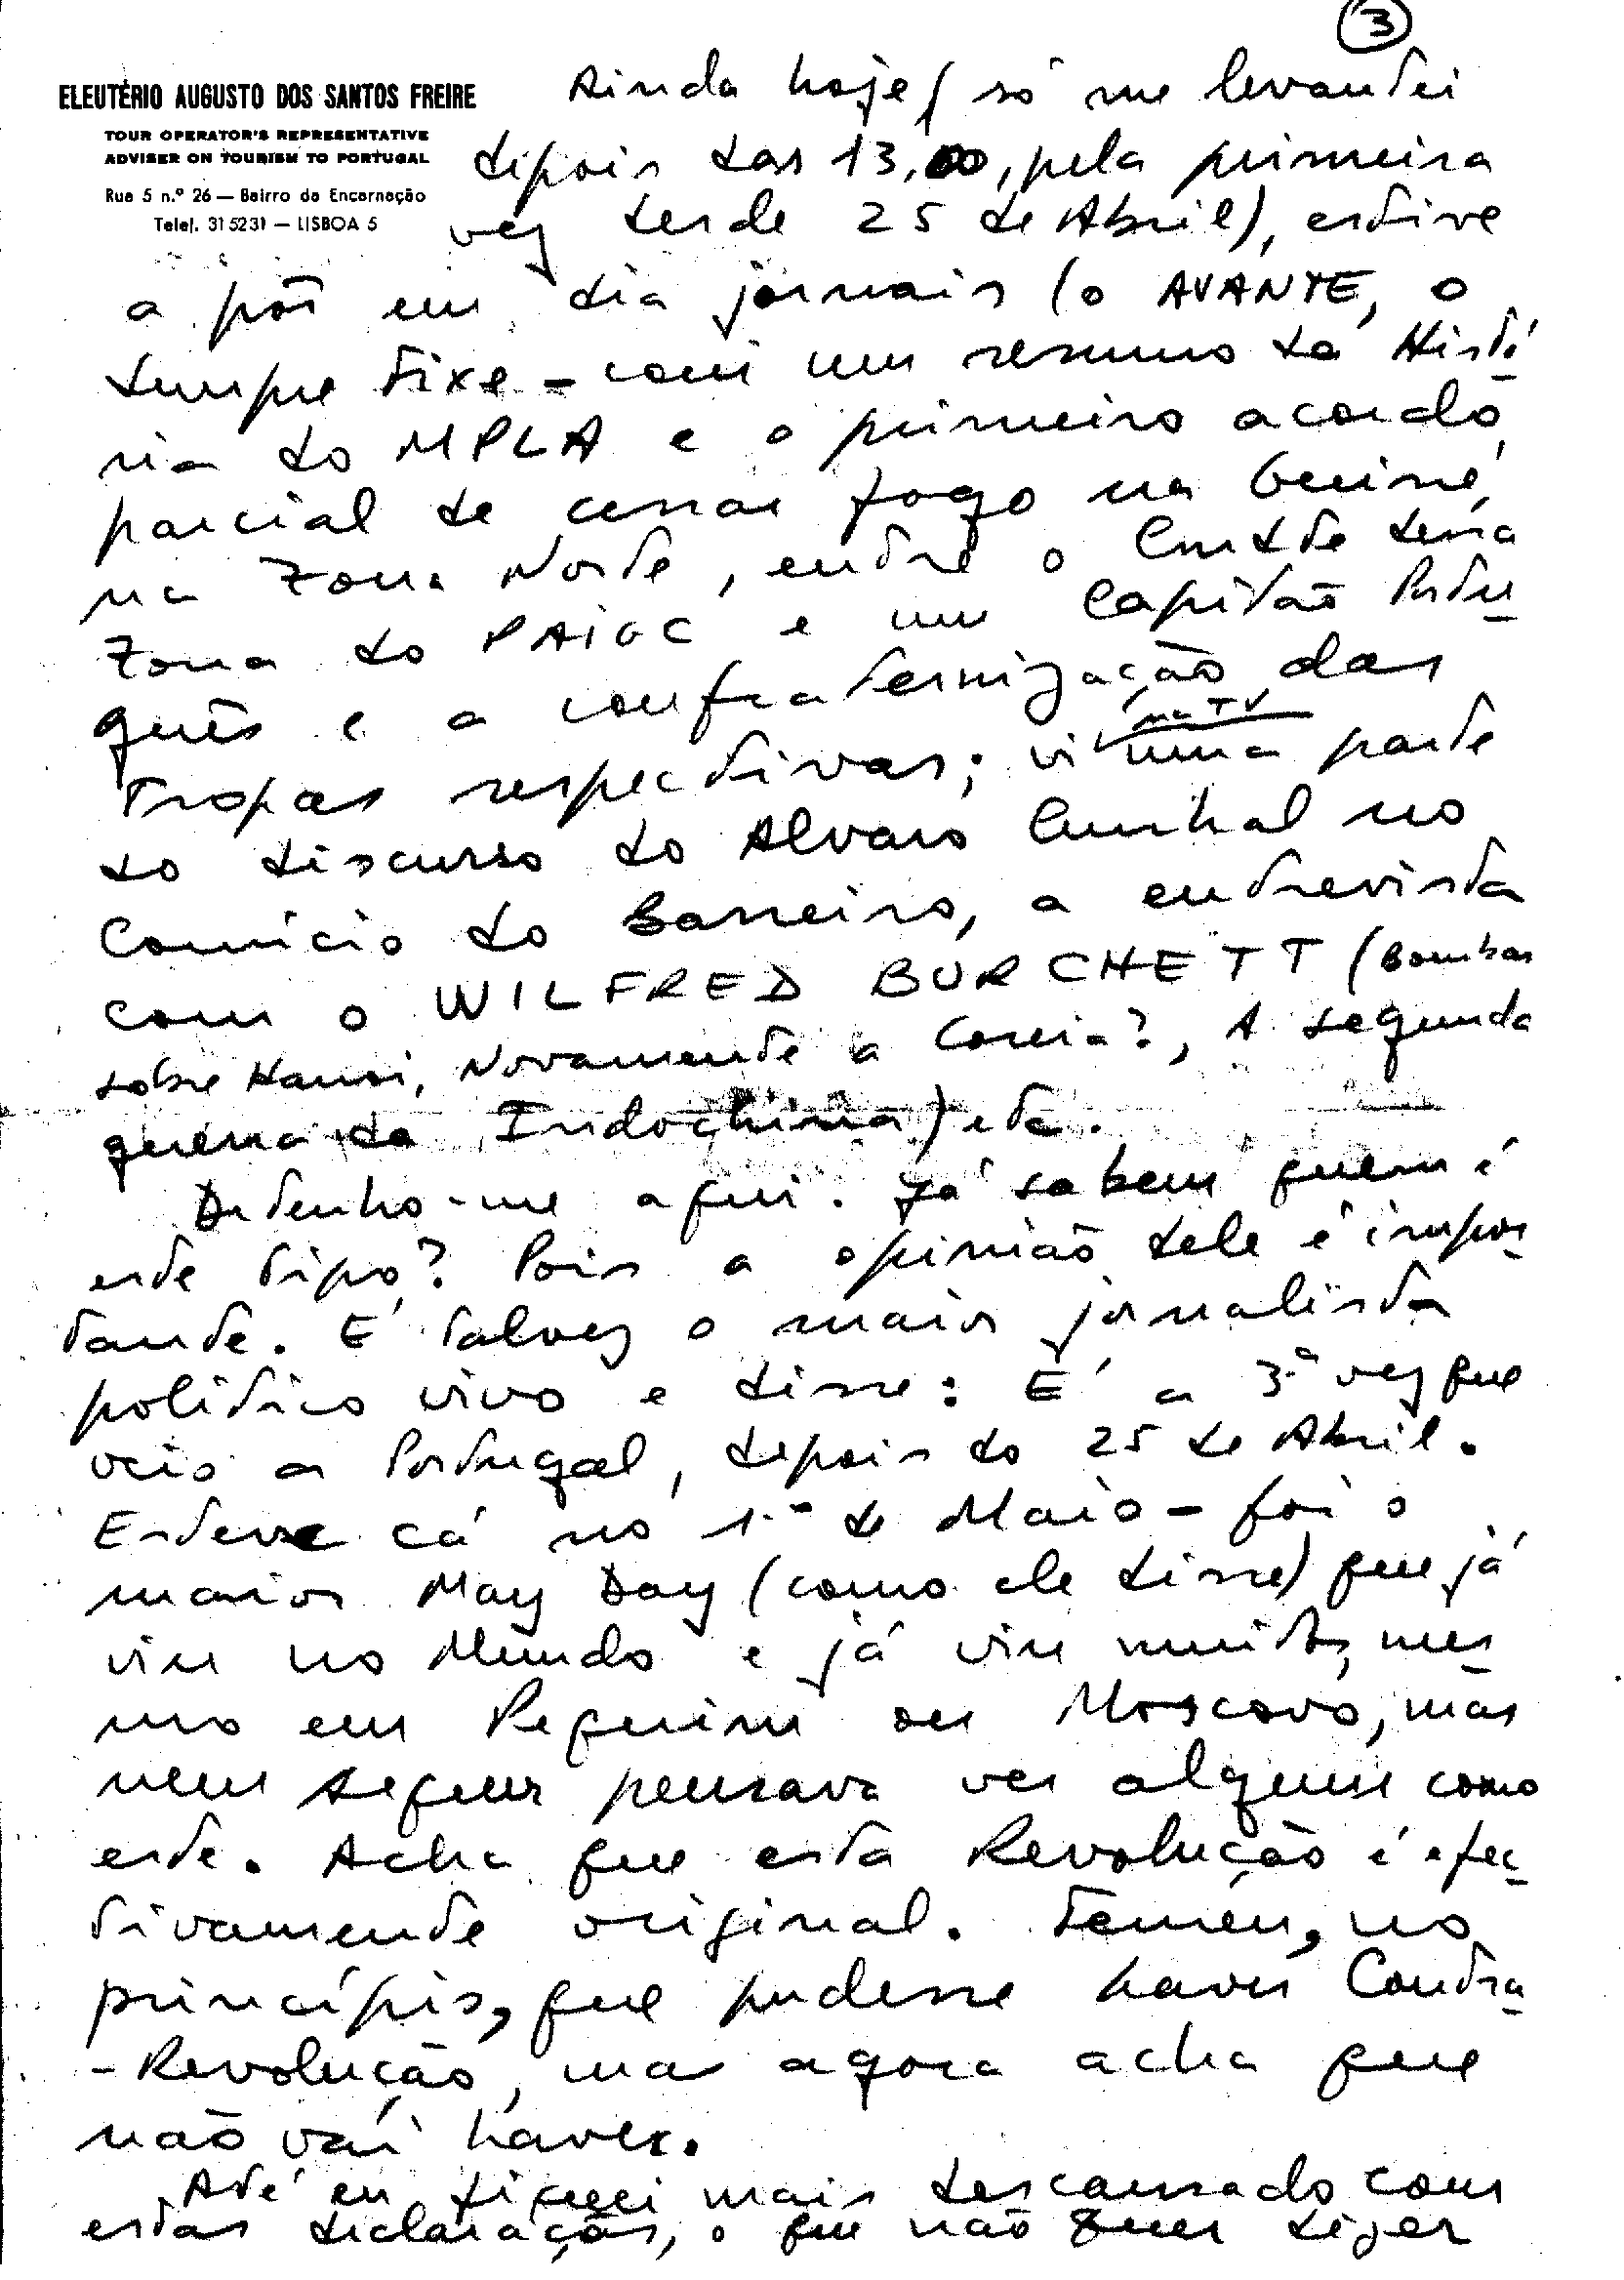 3
ELEUTÉRIO AUGUSTO DOS SANTOS FREIRE
TOUR OPERATOR'S REPRESENTATIVE
ADVISER ON TOURISM TO PORTUGAL
Rua 5 n.º 26 — Bairro da Encarnação
Telef. 315231 — LISBOA 5
Ainda hoje (só me levantei
depois das 13,00, pela primeira
vez desde 25 de Abril), estive
a pôr em dia jornais (o AVANTE, o
Sempre Fixe - com um resumo da Histó
ria do MPLA e o primeiro acordo
parcial de cessar fogo na Guiné,
na Zona Norte, entre o Cmdte dessa
Zona do PAIGC e um Capitão Portu
guês e a confraternização das
Tropas respectivas; vi na TV uma parte
do discurso do Alvaro Cunhal no
Comício do Barreiro, a entrevista
com o WILFRED BURCHETT (Bombas
sobre Hanoi, Novamente a Coreia?, A segunda
guerra da Indochina) etc.
Detenho-me aqui. Já sabem quem é
este tipo? Pois a opinião dele é impor
tante. É talvez o maior jornalista
político vivo e disse: É a 3ª vez que
veio a Portugal, depois do 25 de Abril.
Esteve cá no 1.º de Maio - foi o
maior May Day (como ele disse) que já
viu no Mundo e já viu muitos, mes
mo em Pequim ou Moscovo, mas
nem sequer pensava ver algum como
este. Acha que esta Revolução é efec
tivamente original. Temeu, no
princípio, que pudesse haver Contra
-Revolução, mas agora acha que
não vai haver.
Até eu fiquei mais descansado com
estas declarações, o que não quer dizer